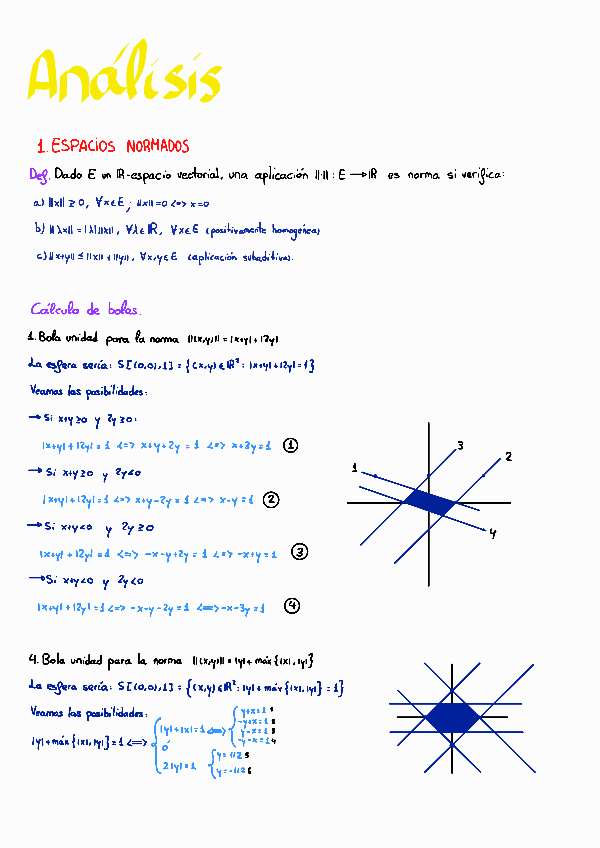 Análisis
1. ESPACIOS NORMADOS
Def. Dado E un ℝ-espacio vectorial, una aplicación ||·|| : E → ℝ es norma si verifica:
a) ||x|| ≥ 0, ∀x∈E; ||x|| = 0 <=> x=0
b) ||λx|| = |λ| ||x||, ∀λ∈ℝ, ∀x∈E (positivamente homogénea)
c) ||x+y|| ≤ ||x|| + ||y||, ∀x,y∈E (aplicación subaditiva).
Cálculo de bolas.
1. Bola unidad para la norma ||(x,y)|| = |x+y| + |2y|
La esfera sería: S[(0,0),1] = {(x,y)∈ℝ²: |x+y|+|2y|=1}
Veamos las posibilidades:
→ Si x+y≥0 y 2y≥0:
|x+y|+|2y|=1 <=> x+y+2y=1 <=> x+3y=1 ①
→ Si x+y≥0 y 2y<0
|x+y|+|2y|=1 <=> x+y-2y=1 <=> x-y=1 ②
→ Si x+y<0 y 2y≥0
|x+y|+|2y|=1 <=> -x-y+2y=1 <=> -x+y=1 ③
→ Si x+y<0 y 2y<0
|x+y|+|2y|=1 <=> -x-y-2y=1 <=> -x-3y=1 ④
1
3
2
4
4. Bola unidad para la norma ||(x,y)|| = |y| + máx{|x|,|y|}
La esfera sería: S[(0,0),1] = {(x,y)∈ℝ²: |y|+máx{|x|,|y|}=1}
Veamos las posibilidades:
|y|+máx{|x|,|y|}=1 <=>
|y|+|x|=1 <=>
y+x=1 1
-y+x=1 2
y-x=1 3
-y-x=1 4
ó
2|y|=1
y=1/2 5
y=-1/2 6